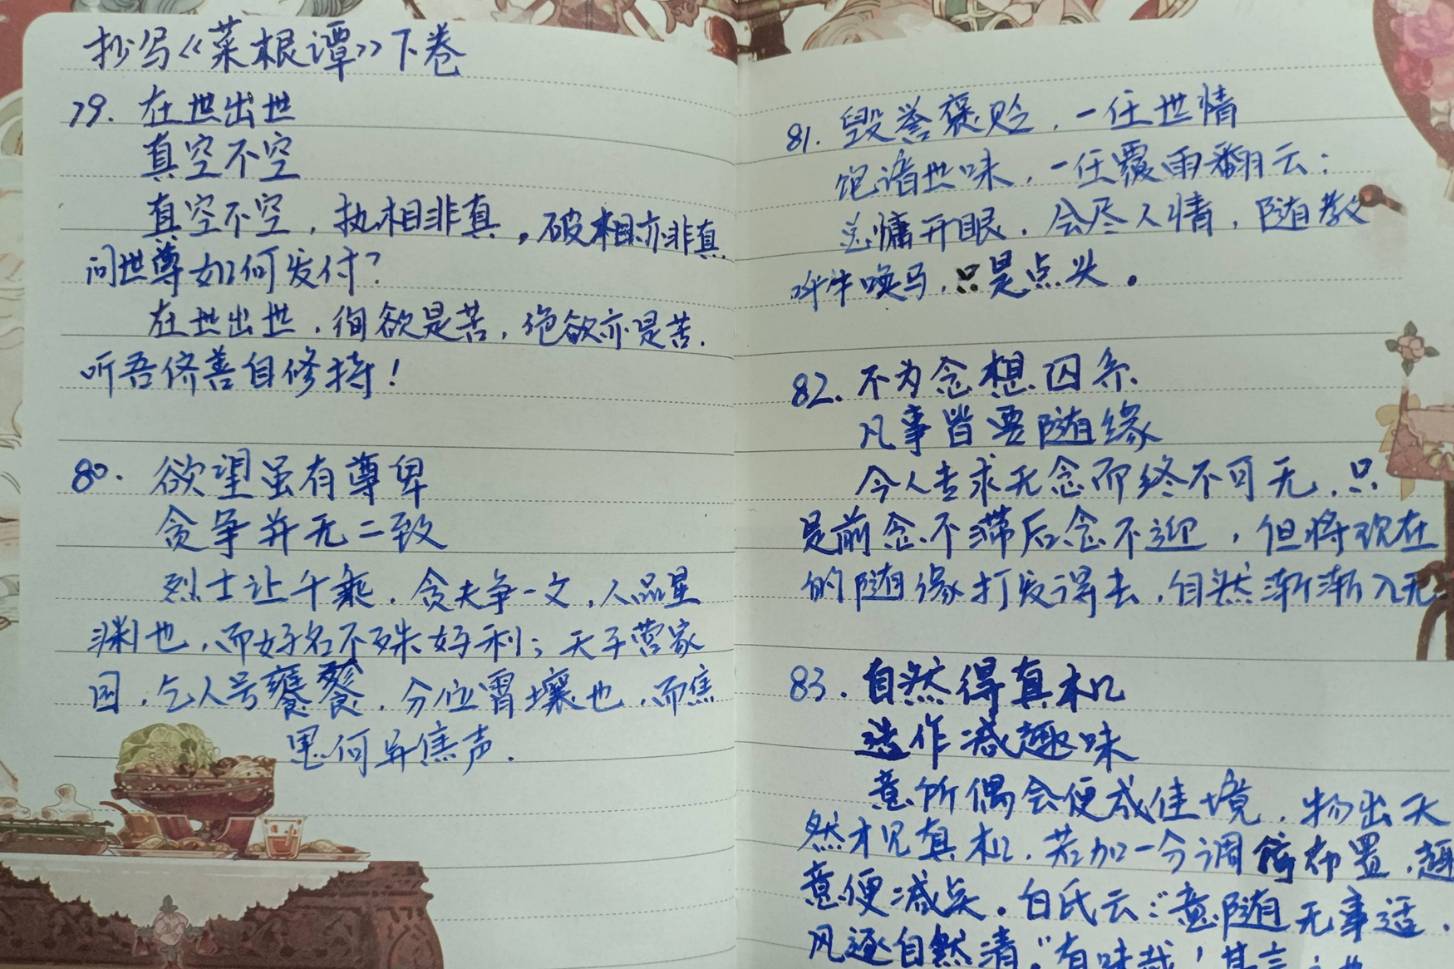 抄写《菜根谭》下卷
79. 在世出世
真空不空
真空不空，执相非真，破相亦非真
问世尊如何发付？
在世出世，徇欲是苦，绝欲亦是苦．
听吾侪善自修持！
80. 欲望虽有尊卑
贪争并无二致
烈士让千乘，贪夫争一文，人品星
渊也，而好名不殊好利；天子营家
国，乞人号饔飧，分位霄壤也，而焦
思何异焦声．
81. 毁誉褒贬，一任世情
饱谙世味，一任覆雨翻云；
总慵开眼，会尽人情，随教
呼牛唤马，只是点头。
82. 不为念想囚系
凡事皆要随缘
今人专求无念而终不可无，只
是前念不滞后念不迎，但将现在
的随缘打发得去，自然渐渐入无
83. 自然得真机
造作减趣味
意所偶会便成佳境，物出天
然才见真机，若加一分调停布置，趣
意便减矣。白氏云："意随无事适，
风逐自然清。"有味哉！其言之也